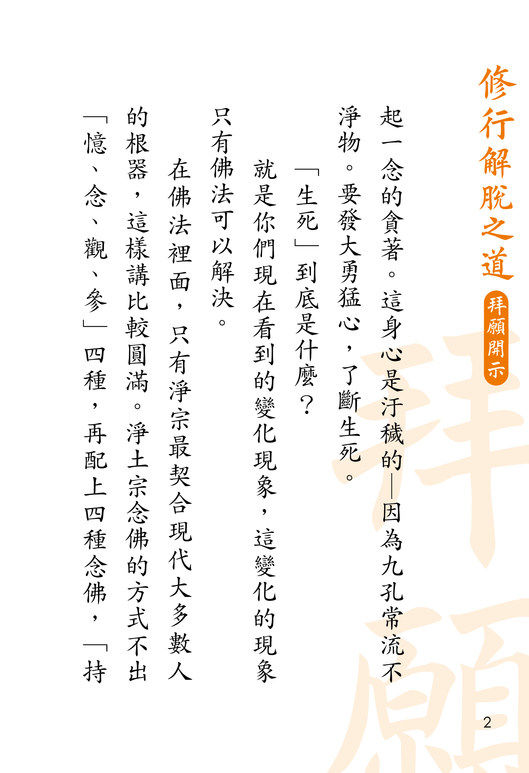 修行解脫之道
拜願開示
起一念的貪著。這身心是汙穢的—因為九孔常流不
淨物。要發大勇猛心，了斷生死。
「生死」到底是什麼？
就是你們現在看到的變化現象，這變化的現象
只有佛法可以解決。
在佛法裡面，只有淨宗最契合現代大多數人
的根器，這樣講比較圓滿。淨土宗念佛的方式不出
「憶、念、觀、參」四種，再配上四種念佛，「持
拜願
2